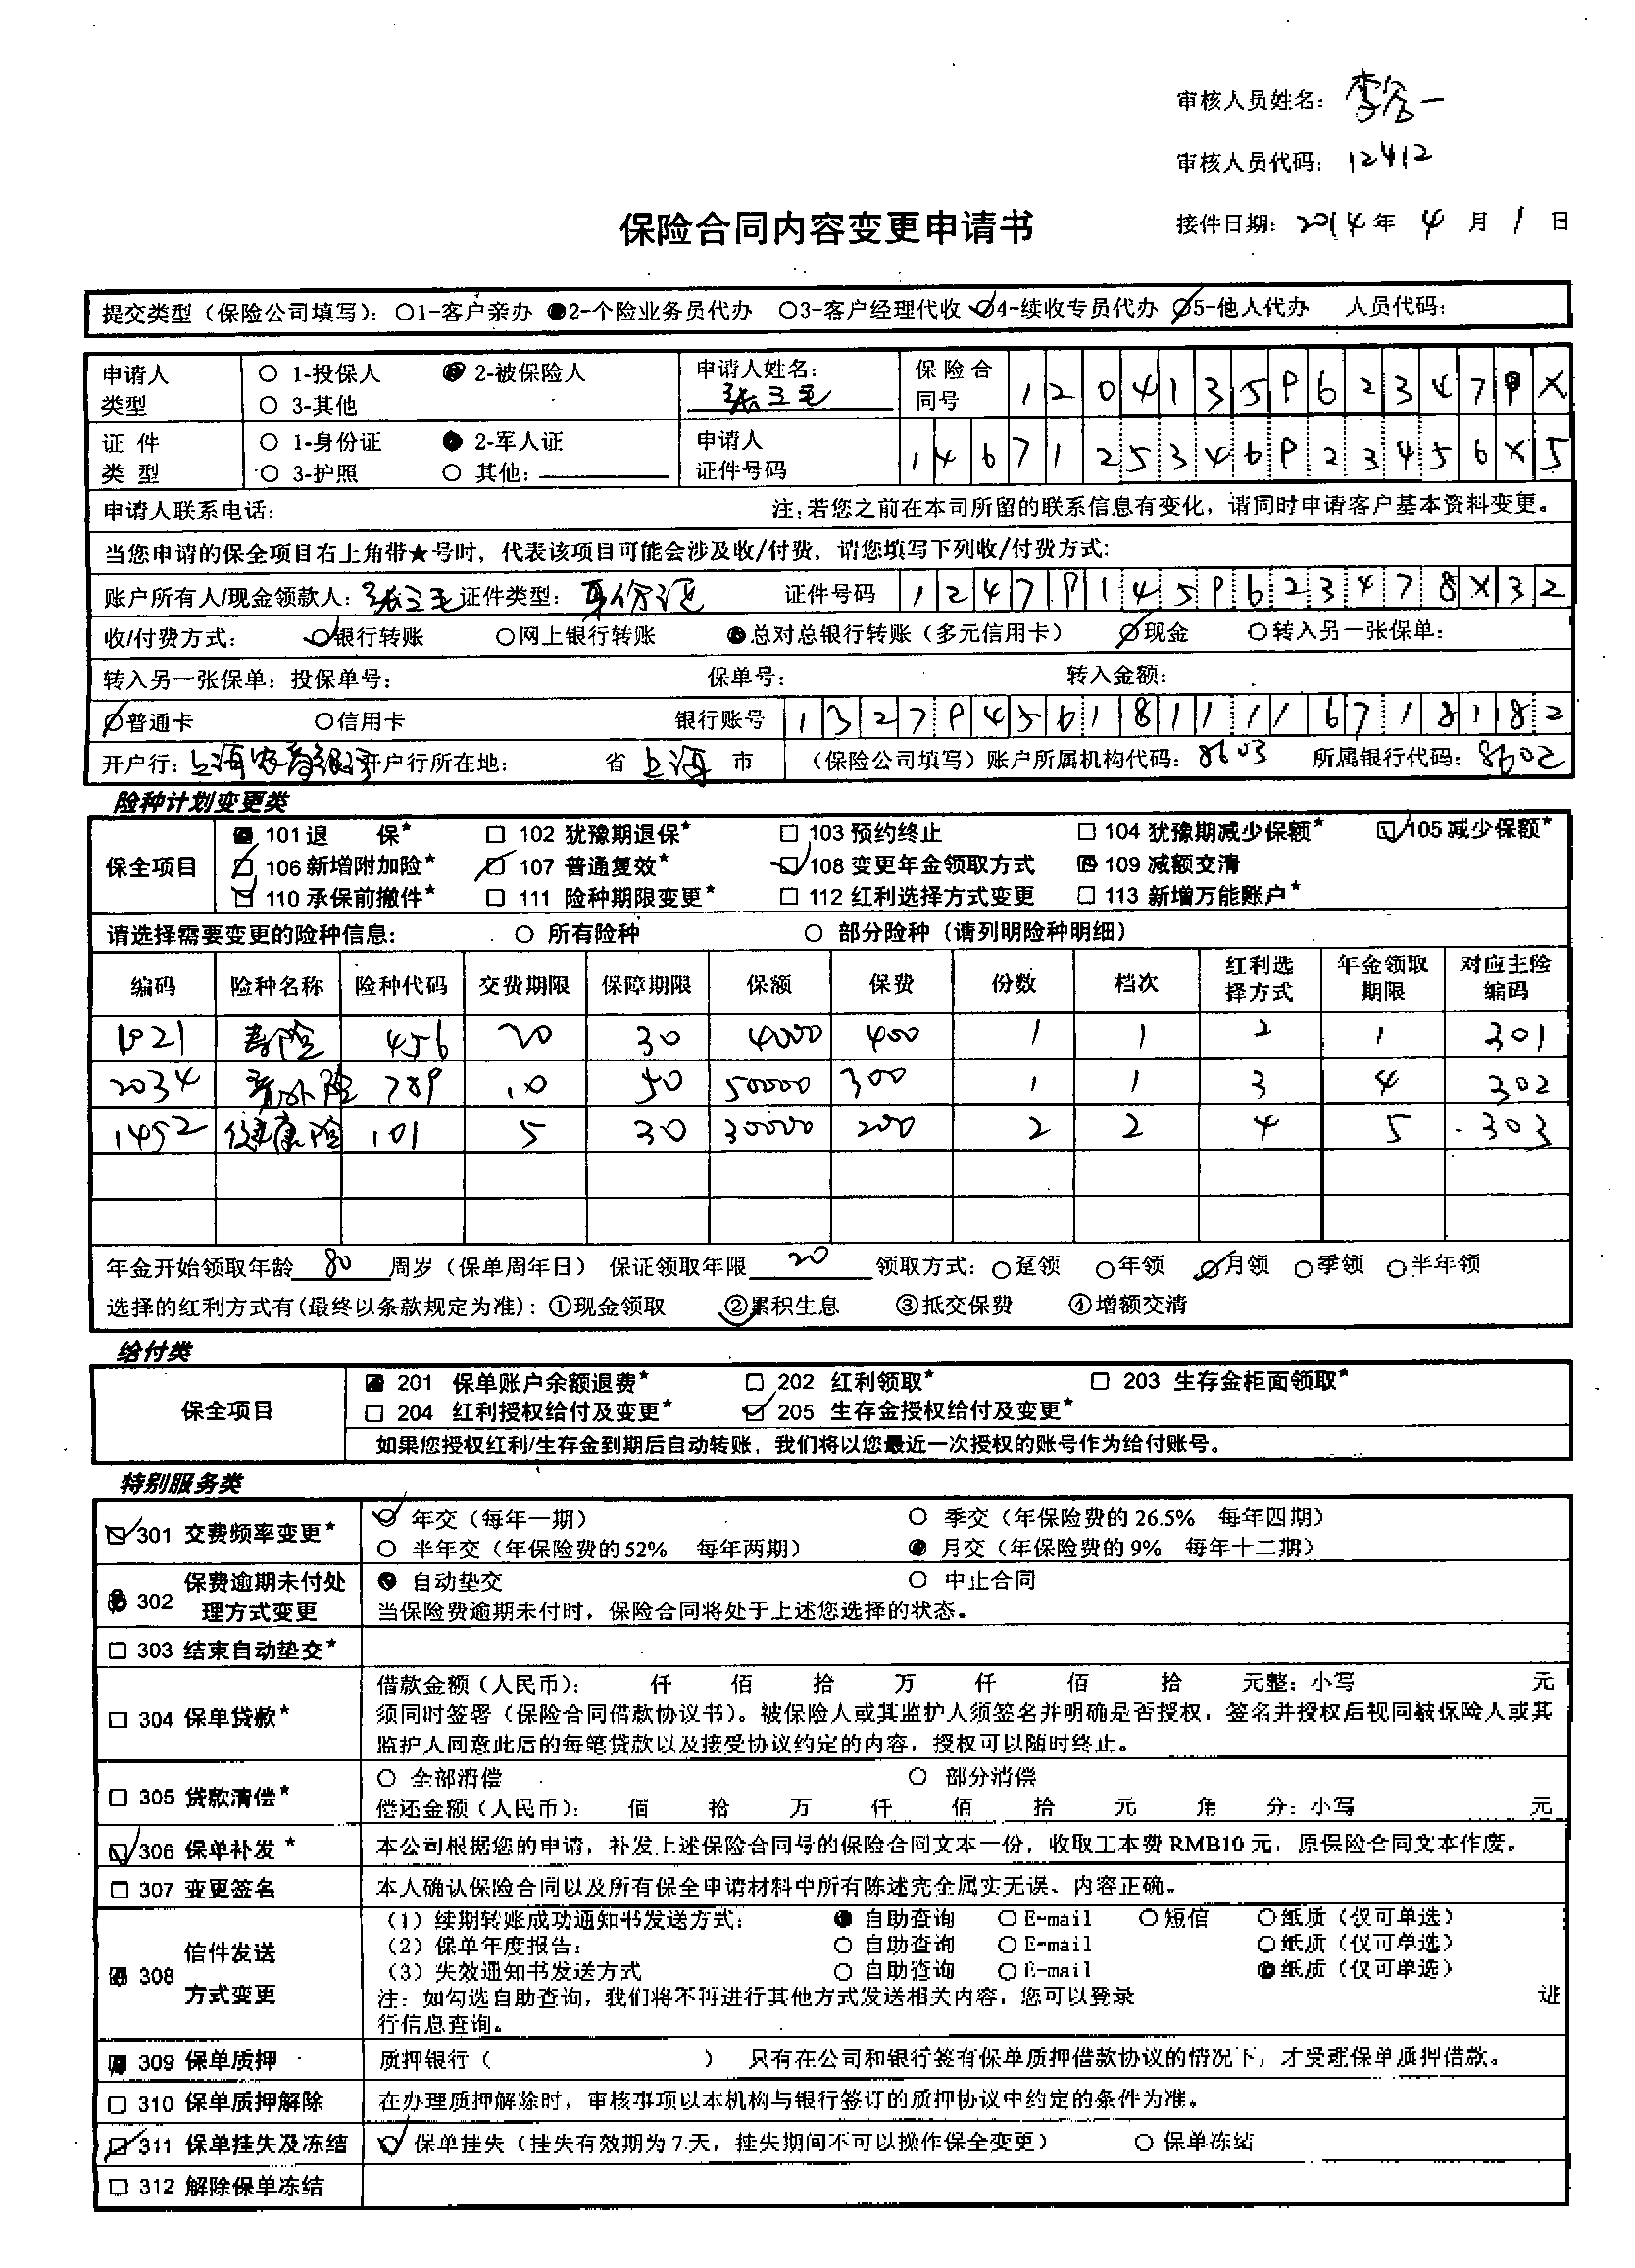 审核人员姓名：李谷一
审核人员代码：12412
保险合同内容变更申请书
接件日期：2014年 4 月 1 日
提交类型（保险公司填写）：○1-客户亲办 ●2-个险业务员代办 ○3-客户经理代收 ○4-续收专员代办 ○5-他人代办 人员代码：
申请人类型 ○ 1-投保人 ● 2-被保险人 ○ 3-其他 申请人姓名：张三毛 保险合同号
证件类型 ○ 1-身份证 ● 2-军人证 ○ 3-护照 ○ 其他： 申请人证件号码
申请人联系电话： 注：若您之前在本司所留的联系信息有变化，请同时申请客户基本资料变更。
当您申请的保全项目右上角带★号时，代表该项目可能会涉及收/付费，请您填写下列收/付费方式：
账户所有人/现金领款人：张三毛 证件类型：身份证 证件号码
收/付费方式： ○银行转账 ○网上银行转账 ●总对总银行转账（多元信用卡） ○现金 ○转入另一张保单：
转入另一张保单：投保单号： 保单号： 转入金额：
○普通卡 ○信用卡 银行账号
开户行：上海 开户行所在地： 省 上海 市 （保险公司填写）账户所属机构代码：8603 所属银行代码：8602
险种计划变更类
保全项目
101 退 保★ □ 102 犹豫期退保★ □ 103 预约终止 □ 104 犹豫期减少保额★ □ 105 减少保额★
□ 106 新增附加险★ □ 107 普通复效★ □ 108 变更年金领取方式 109 减额交清
□ 110 承保前撤件★ □ 111 险种期限变更★ □ 112 红利选择方式变更 □ 113 新增万能账户★
请选择需要变更的险种信息： ○ 所有险种 ○ 部分险种（请列明险种明细）
编码 险种名称 险种代码 交费期限 保障期限 保额 保费 份数 档次 红利选择方式 年金领取期限 对应主险编码
1021 寿险 456 20 30 4000 400 1 1 2 1 301
2034 意外险 789 10 50 50000 300 1 1 3 4 302
1452 健康险 101 5 30 30000 200 2 2 4 5 303
年金开始领取年龄 80 周岁（保单周年日） 保证领取年限 20 领取方式：○趸领 ○年领 ○月领 ○季领 ○半年领
选择的红利方式有（最终以条款规定为准）：①现金领取 ②累积生息 ③抵交保费 ④增额交清
给付类
保全项目
201 保单账户余额退费★ □ 202 红利领取★ □ 203 生存金柜面领取★
□ 204 红利授权给付及变更★ □ 205 生存金授权给付及变更★
如果您授权红利/生存金到期后自动转账，我们将以您最近一次授权的账号作为给付账号。
特别服务类
□ 301 交费频率变更★ ○ 年交（每年一期） ○ 季交（年保险费的 26.5% 每年四期）
○ 半年交（年保险费的 52% 每年两期） ● 月交（年保险费的 9% 每年十二期）
302 保费逾期未付处理方式变更 ● 自动垫交 ○ 中止合同
当保险费逾期未付时，保险合同将处于上述您选择的状态。
□ 303 结束自动垫交★
□ 304 保单贷款★ 借款金额（人民币）： 仟 佰 拾 万 仟 佰 拾 元整；小写 元
须同时签署（保险合同借款协议书）。被保险人或其监护人须签名并明确是否授权，签名并授权后视同被保险人或其
监护人同意此后的每笔贷款以及接受协议约定的内容，授权可以随时终止。
□ 305 贷款清偿★ ○ 全部清偿 ○ 部分清偿
偿还金额（人民币）： 佰 拾 万 仟 佰 拾 元 角 分；小写 元
□ 306 保单补发 ★ 本公司根据您的申请，补发上述保险合同号的保险合同文本一份，收取工本费 RMB10 元，原保险合同文本作废。
□ 307 变更签名 本人确认保险合同以及所有保全申请材料中所有陈述完全属实无误、内容正确。
308 信件发送方式变更 （1）续期转账成功通知书发送方式： ● 自助查询 ○ E-mail ○ 短信 ○纸质（仅可单选）
（2）保单年度报告： ○ 自助查询 ○ E-mail ○纸质（仅可单选）
（3）失效通知书发送方式 ○ 自助查询 ○ E-mail ●纸质（仅可单选）
注：如勾选自助查询，我们将不再进行其他方式发送相关内容，您可以登录 进
行信息查询。
309 保单质押 质押银行（ ） 只有在公司和银行签有保单质押借款协议的情况下，才受理保单质押借款。
□ 310 保单质押解除 在办理质押解除时，审核事项以本机构与银行签订的质押协议中约定的条件为准。
□ 311 保单挂失及冻结 ○ 保单挂失（挂失有效期为 7 天，挂失期间不可以操作保全变更） ○ 保单冻结
□ 312 解除保单冻结